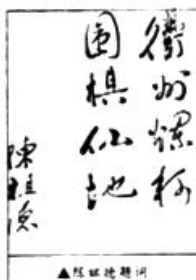 衢州烂柯
围棋仙地
陈祖德
▲陈祖德题词